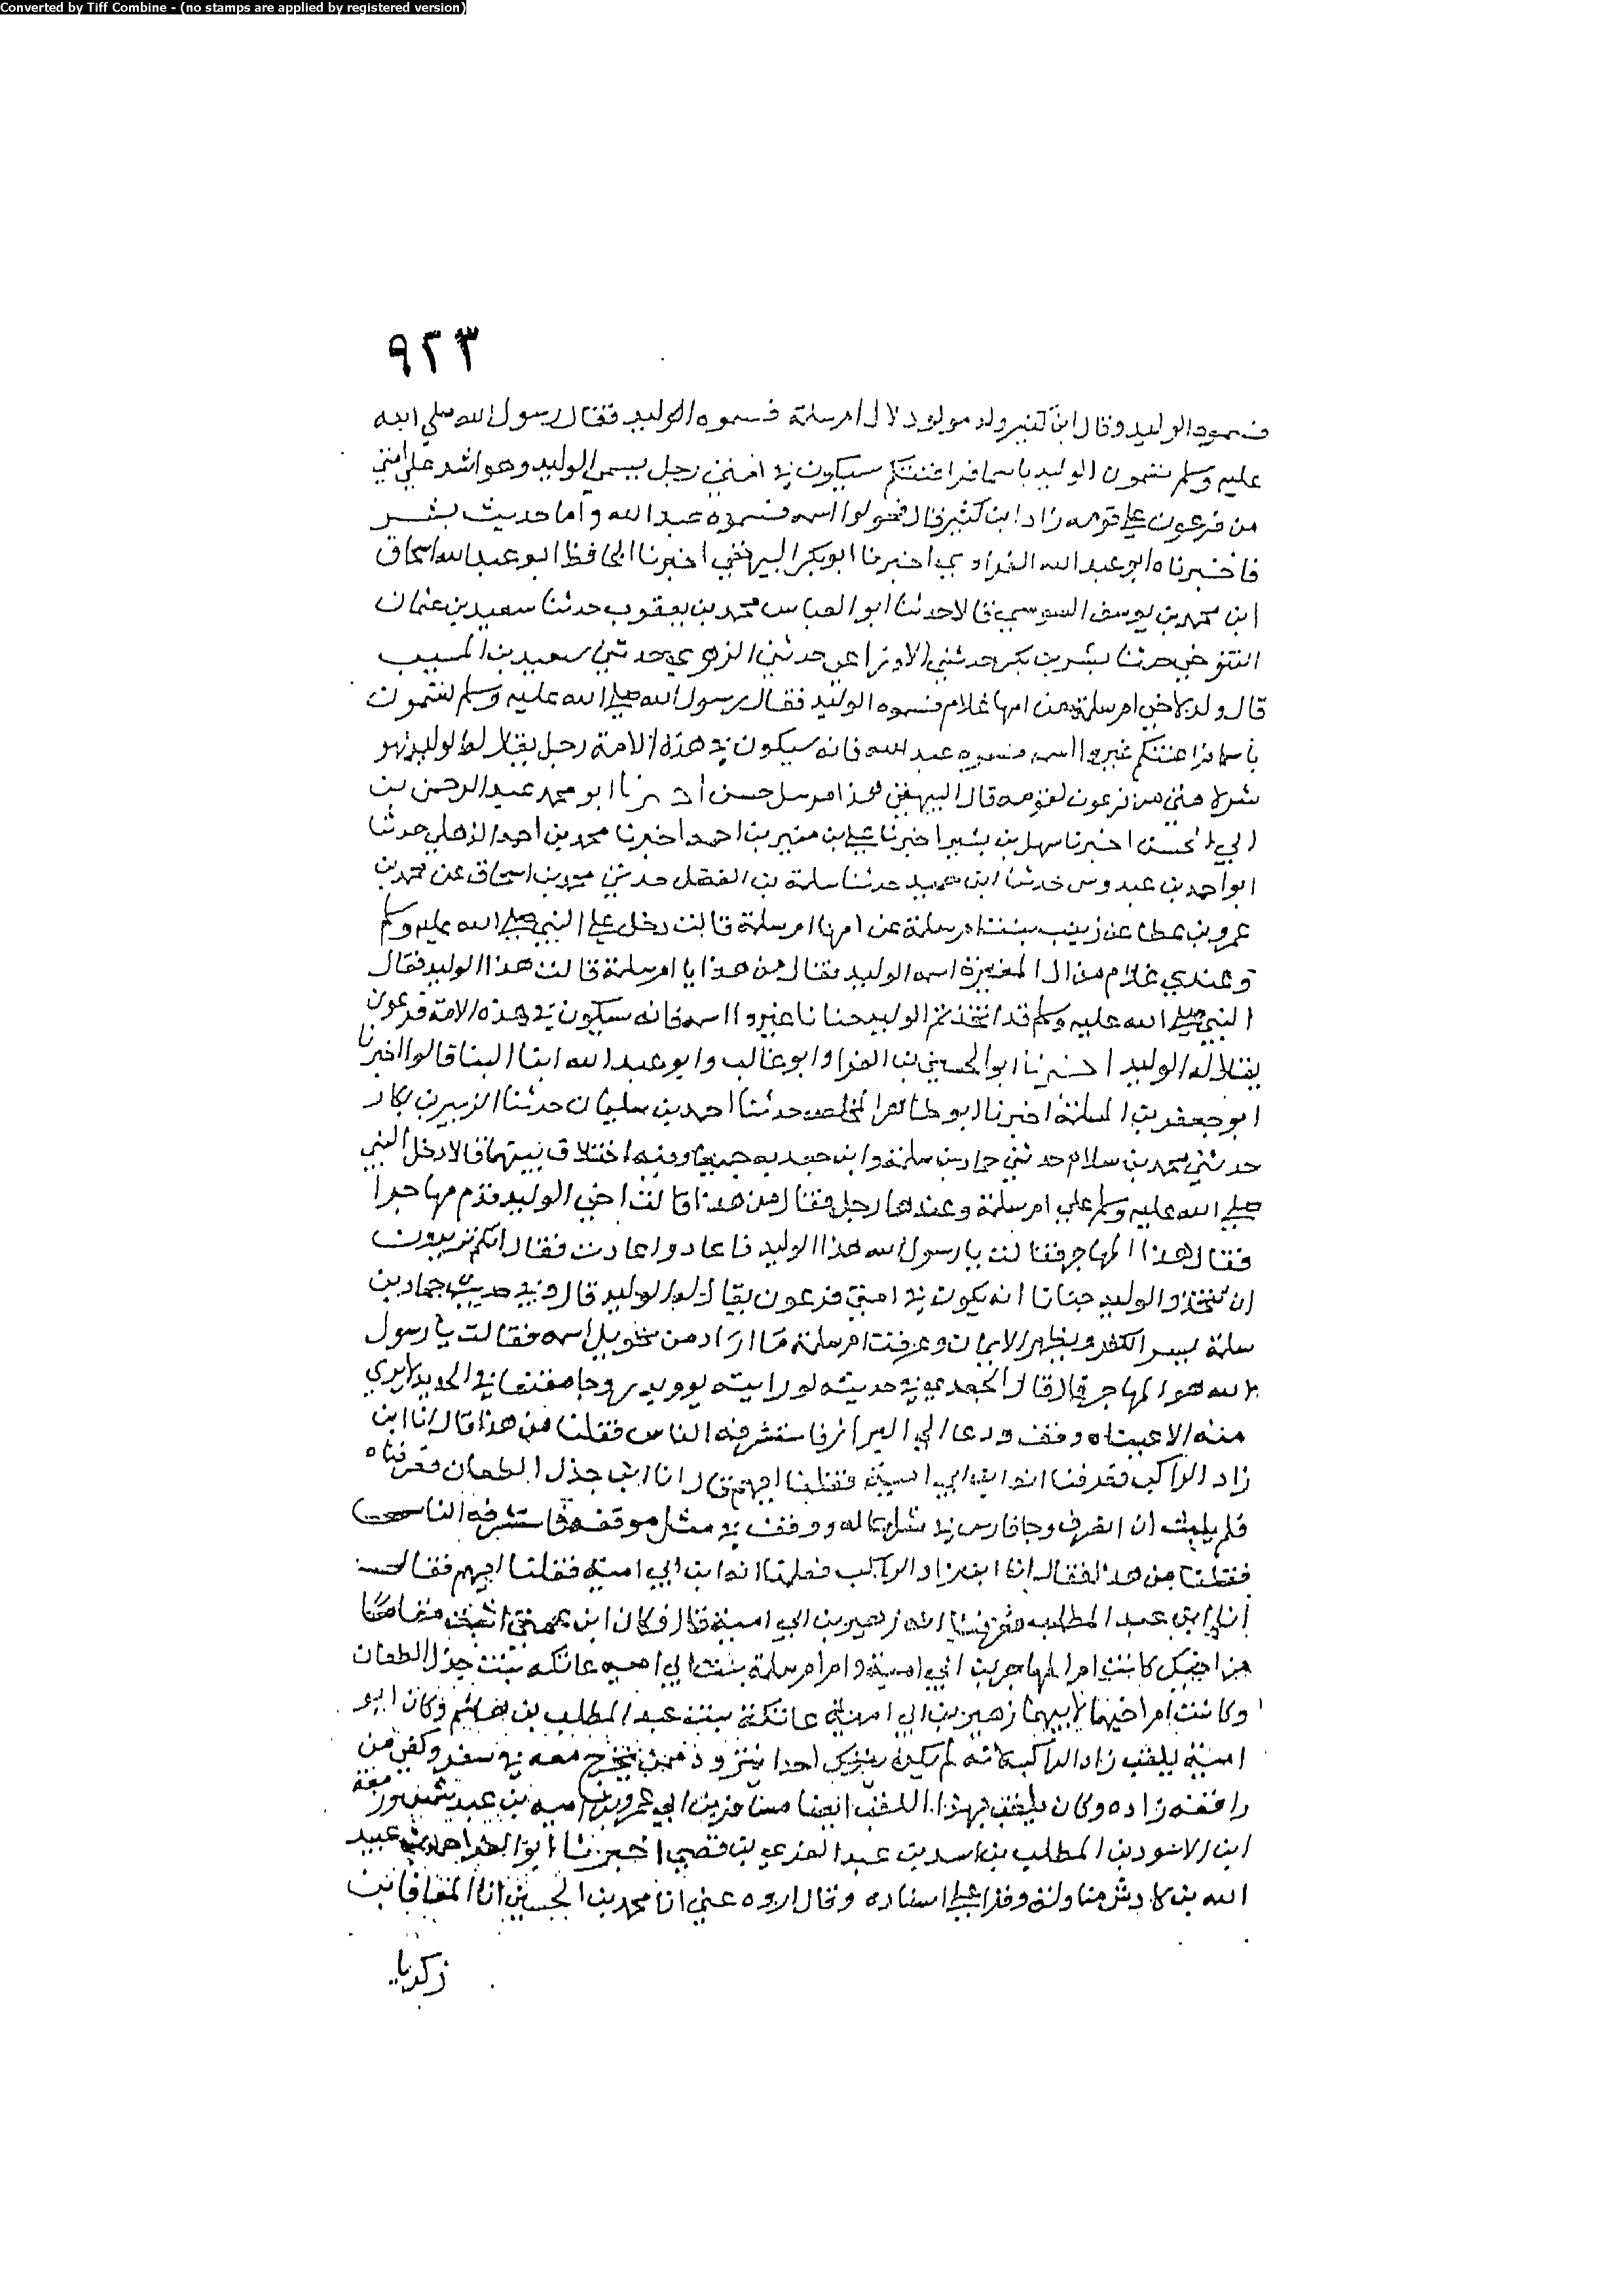 Converted by Tiff Combine - (no stamps are applied by registered version)
٩٢٣
فسموه الوليد وقال ابن كثير ولد مولود لال ام سلمة فسموه الوليد فقال رسول الله صلي الله
عليه وسلم تسمون الوليد باسما فراعنتكم سيكون في امتي رجل يسمي الوليد وهو اشد علي امتي
من فرعون علي قومه زاد ابن كثير قال فحولوا اسمه فسموه عبد الله واما حديث بشر
فاخبرناه ابو عبد الله الفراوي اخبرنا ابو بكر البيهقي اخبرنا الحافظ ابو عبد الله اسحاق
ابن محمد بن يوسف السوسي قالا حدثنا ابو العباس محمد بن يعقوب حدثنا سعيد بن عثمان
التنوخي حدثنا بشر بن بكر حدثني الاوزاعي حدثني الزهري حدثني سعيد بن المسيب
قال ولد لاخي ام سلمة من امها غلام فسموه الوليد فقال رسول الله صلي الله عليه وسلم تسمون
باسما فراعنتكم غيروا اسمه فسموه عبد الله فانه سيكون في هذه الامة رجل يقال له الوليد لهو
شر لامتي من فرعون لقومه قال البيهقي هذا مرسل حسن اخبرنا ابو محمد عبد الرحمن بن
ابي الحسن اخبرنا سهل بن بشر اخبرنا علي بن منير بن احمد اخبرنا محمد بن احمد الذهلي حدثنا
ابو احمد بن عبدوس حدثنا ابن حميد حدثنا سلمة بن الفضل حدثني محمد بن اسحاق عن محمد بن
عمرو بن عطا عن زينب بنت ام سلمة عن امها ام سلمة قالت دخل علي النبي صلي الله عليه وسلم
وعندي غلام من ال المغيرة اسمه الوليد فقال من هذا يا ام سلمة قالت هذا الوليد فقال
النبي صلي الله عليه وسلم قد اتخذتم الوليد حنانا غيروا اسمه فانه سيكون في هذه الامة فرعون
يقال له الوليد اخبرنا ابو الحسين بن الفرا وابو غالب وابو عبد الله ابنا البنا قالوا اخبرنا
ابو جعفر بن المسلمة اخبرنا ابو طاهر المخلص حدثنا احمد بن سليمان حدثنا الزبير بن بكار
حدثني محمد بن سلام حدثني حماد بن سلمة وابن جعدبه جميعا وفيه اختلاف بينهما قالا دخل النبي
صلي الله عليه وسلم علي ام سلمة وعندها رجل فقال من هذا قالت اخي الوليد قدم مهاجرا
فقال هذا المهاجر فقالت يا رسول الله هذا الوليد فاعاد واعادت فقال انكم تريدون
ان تتخذوا الوليد حنانا انه يكون في امتي فرعون يقال له الوليد قال وفي حديث حماد بن
سلمة يسر الكفر ويظهر الايمان وعرفت ام سلمة ما اراد من تحويل اسمه فقالت يا رسول
الله هو المهاجر قال وقال الجعدي في حديثه لو رايته يوم بدر وجا مقنعا في الحديد لا يري
منه الا عيناه ووقف ودعا الي البراز فاستشرفه الناس فقلنا من هذا قال انا ابن
زاد الراكب فعرفنا انه ابن ابي امية فقلنا ايهم قال انا ابن جذل الطعان فعرفناه
فلم يلبث ان انصرف وجا فارس في مثل حاله ووقف في مثل موقفه فاستشرفه الناس
فقلنا من هذا فقال انا ابن زاد الراكب فعلمنا انه ابن ابي امية فقلنا ايهم فقال
انا ابن عبد المطلب فعرفنا انه زهير بن ابي امية قال فكان ابن عمتي اثبت مقاما
من اخيك كانت ام المهاجر بن ابي امية وام ام سلمة بنت ابي اميه عاتكه بنت جذل الطعان
وكانت ام اخيهما لابيهما زهير بن ابي امية عاتكة بنت عبد المطلب بن هاشم وكان ابو
امية يلقب زاد الراكب لانه لم يكن يترك احدا يتزود ممن يخرج معه في سفر وكفي من
رافقه زاده وكان يلقب بهذا اللقب ايضا مسافر بن ابي عمرو بن اميه بن عبد شمس وزمعة
ابن الاسود بن المطلب بن اسد بن عبد العزي بن قصي اخبرنا ابو العز احمد بن عبيد
الله بن كادش مناولة وقرا علي اسناده وقال اروه عني انا محمد بن الحسين انا المعافا بن
زكريا